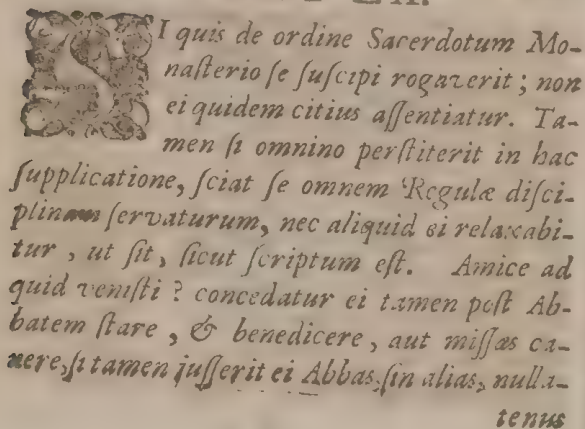 SI quis de ordine Sacerdotum Mo-
naſterio ſe ſuſcipi rogaverit; non
ei quidem citius aſſentiatur. Ta-
men ſi omnino perſtiterit in hac
ſupplicatione, ſciat ſe omnem Regulæ diſci-
plinam ſervaturum, nec aliquid ei relaxabi-
tur, ut ſit, ſicut ſcriptum eſt. Amice ad
quid veniſti? concedatur ei tamen poſt Ab-
batem ſtare, & benedicere, aut miſſas ca-
nere, ſi tamen juſſerit ei Abbas. ſin alias, nulla-
tenus